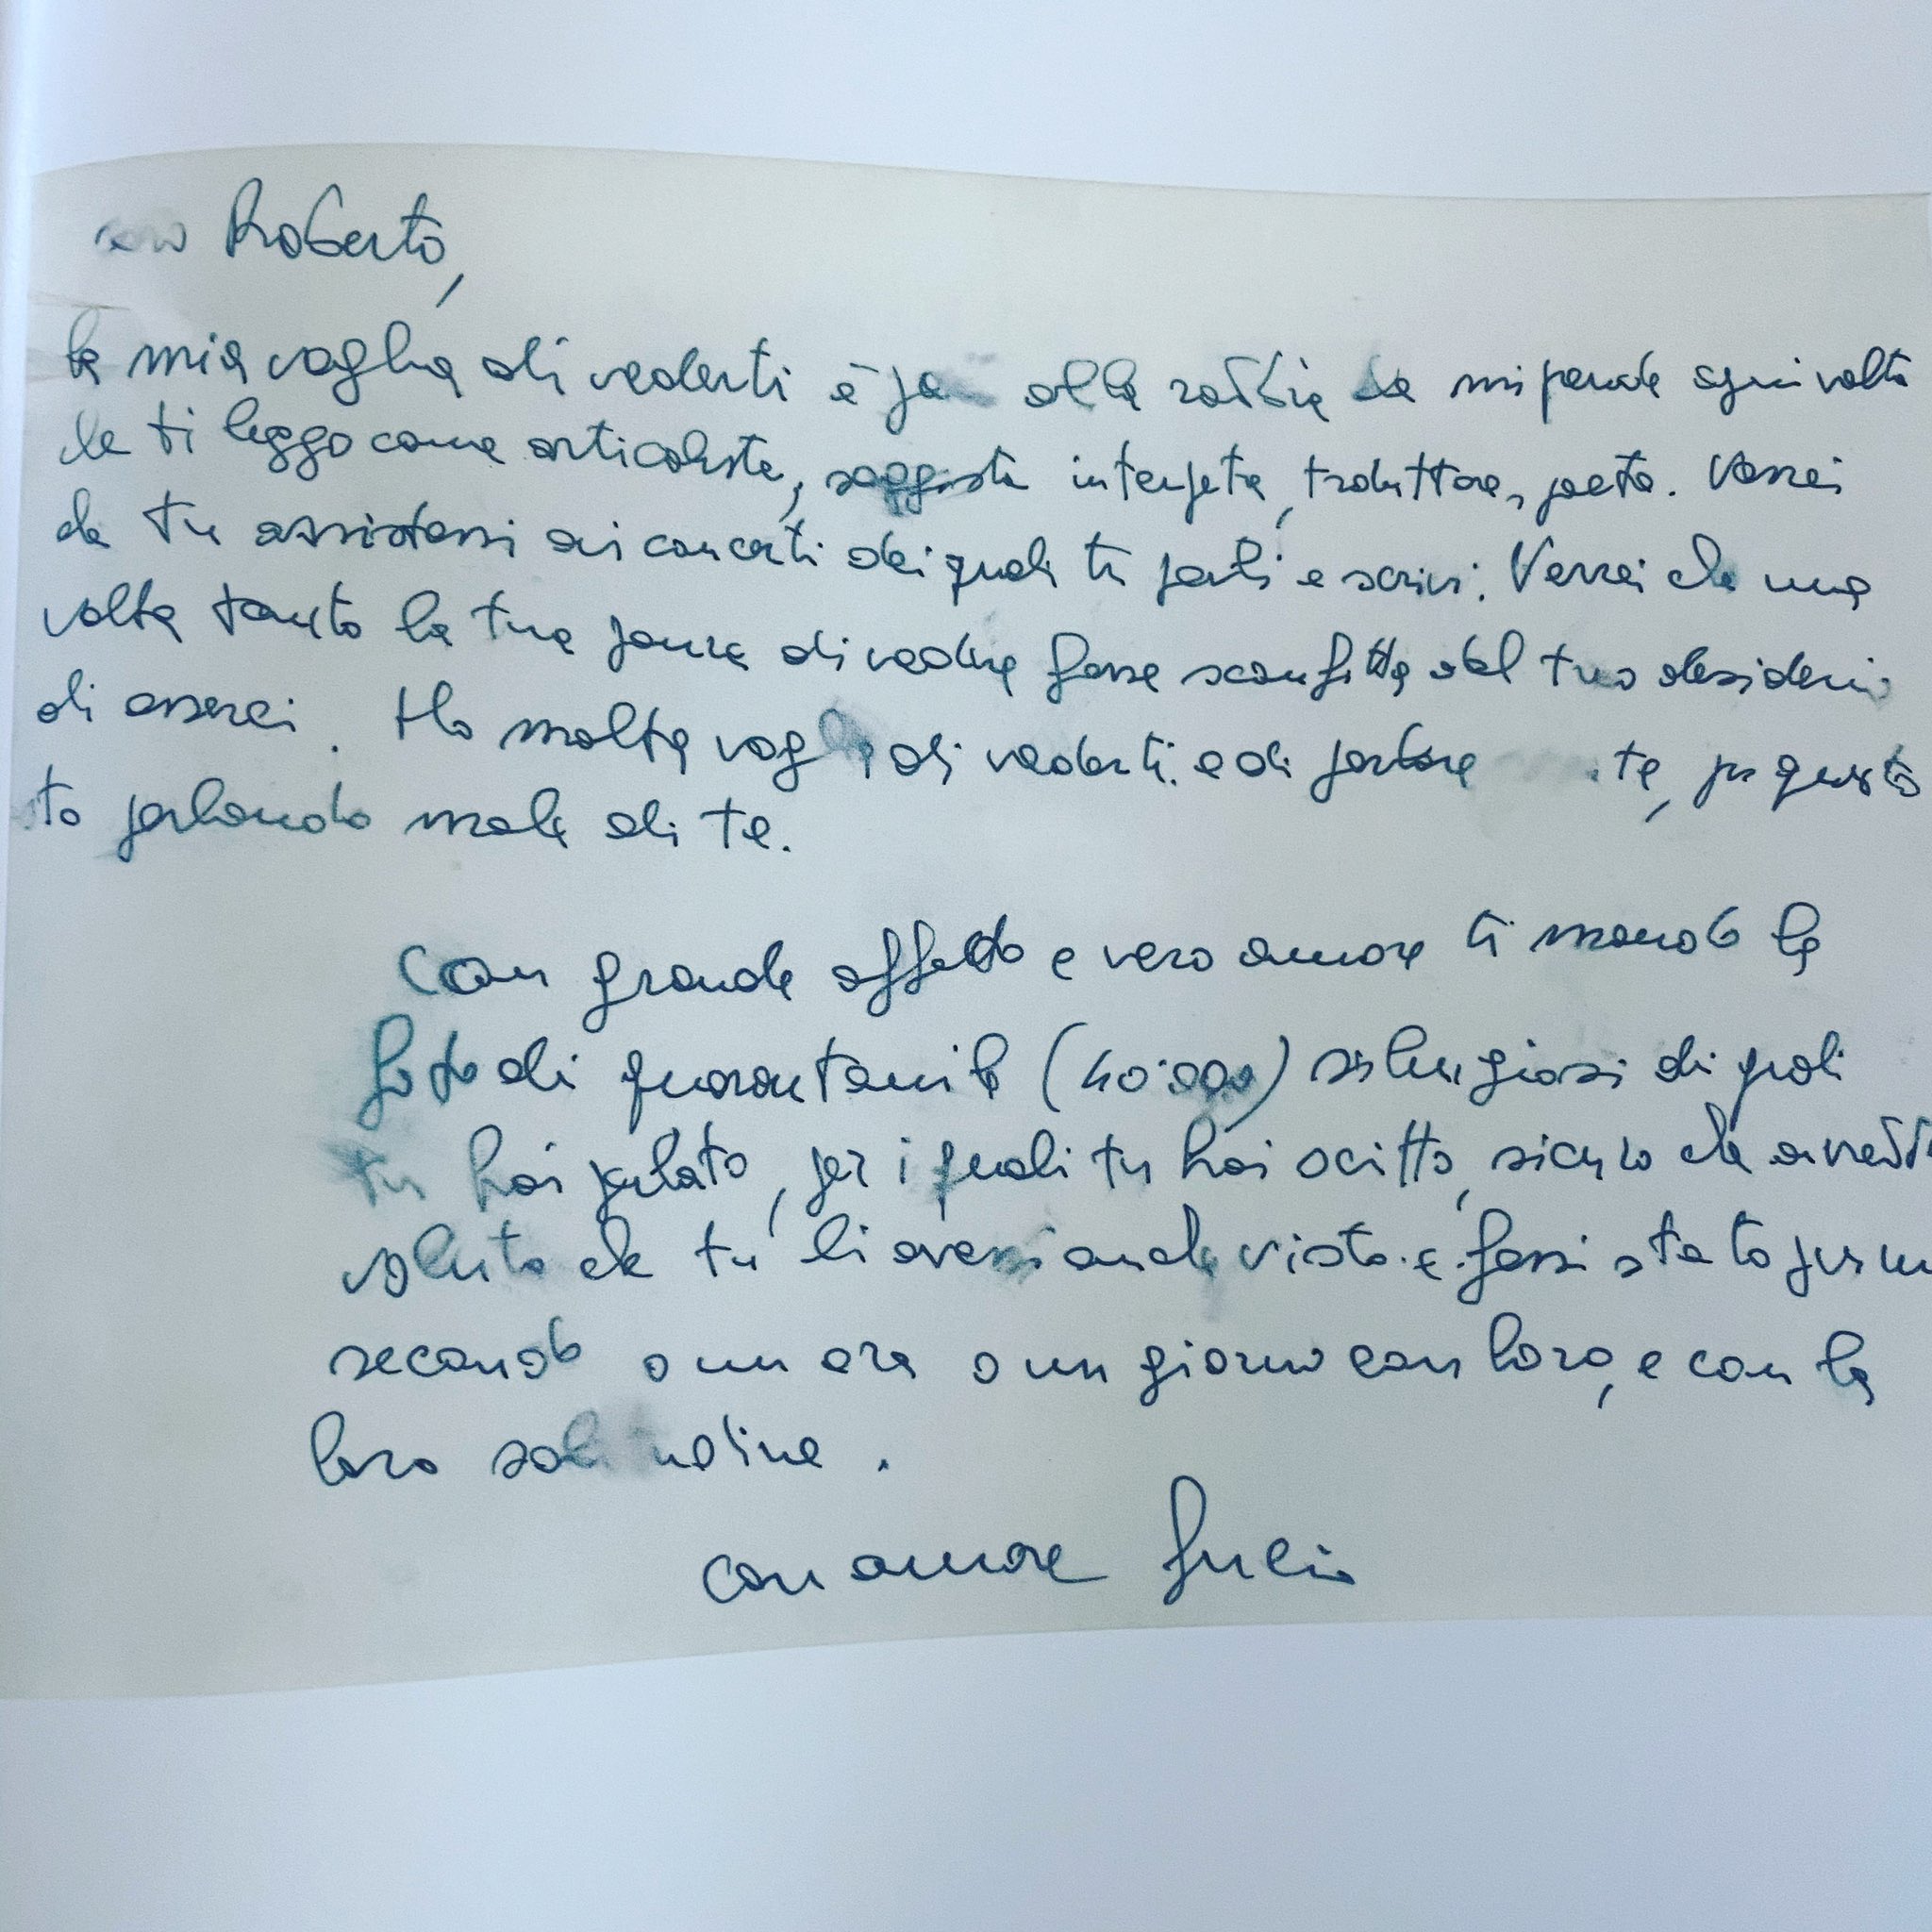 caro Roberto,
la mia voglia di vederti è pari alla rabbia che mi prende ogni volta
che ti leggo come articolista, saggista interprete, traduttore, poeta. Vorrei
che tu assistessi ai concerti dei quali tu parli e scrivi. Vorrei che una
volta tanto la tua paura di vedere fosse sconfitta dal tuo desiderio
di esserci. Ho molta voglia di vederti e di parlare te, per questo
sto parlando male di te.
Con grande affetto e vero amore ti mando la
foto di quarantamila (40.000) di quali
tu hai parlato, per i quali tu hai scritto, sicuro che avresti
voluto che tu li avessi anche visto e fossi stato per un
secondo o un ora o un giorno con loro, e con la
loro solitudine.
con amore Lucio